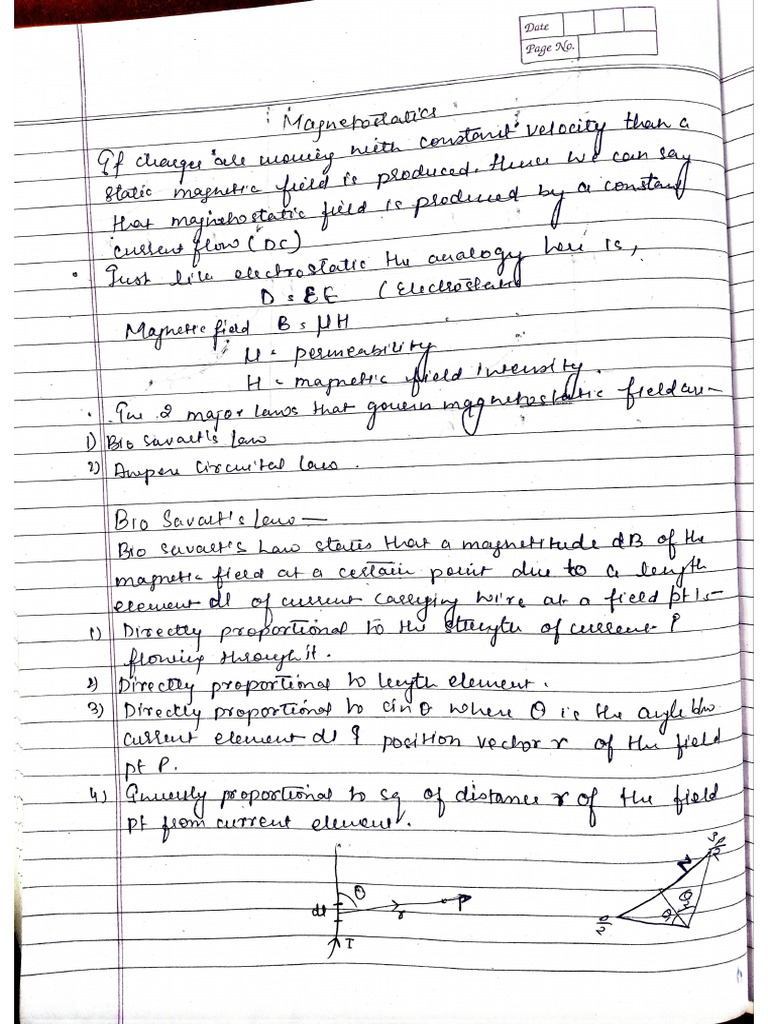 Date
Page No.
Magnetostatics
If charges are moving with constant velocity than a
static magnetic field is produced. Hence we can say
that magnetostatic field is produced by a constant
current flow (DC)
Just like electrostatic the analogy here is,
D = εE (Electrostatic
Magnetic field B = μH
μ = permeability
H = magnetic field intensity.
The 2 major laws that govern magnetostatic field are -
1) Bio Savart's Law
2) Ampere Circuital Law.
Bio Savart's Law —
Bio Savart's Law states that a magnetitude dB of the
magnetic field at a certain point due to a length
element dl of current carrying wire at a field pt is -
1) Directly proportional to the strength of current I
flowing through it.
2) Directly proportional to length element.
3) Directly proportional to sinθ where θ is the angle btw
current element dl & position vector r of the field
pt P.
4) Inversely proportional to sq of distance r of the field
pt from current element.
θ
dl
r
P
I